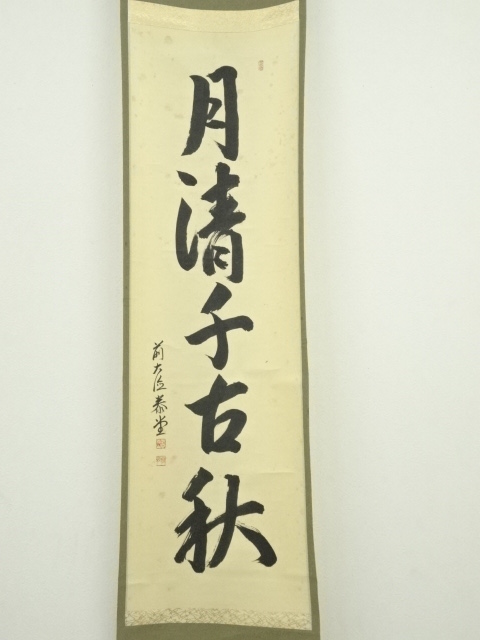 月清千古秋
前大徳泰堂